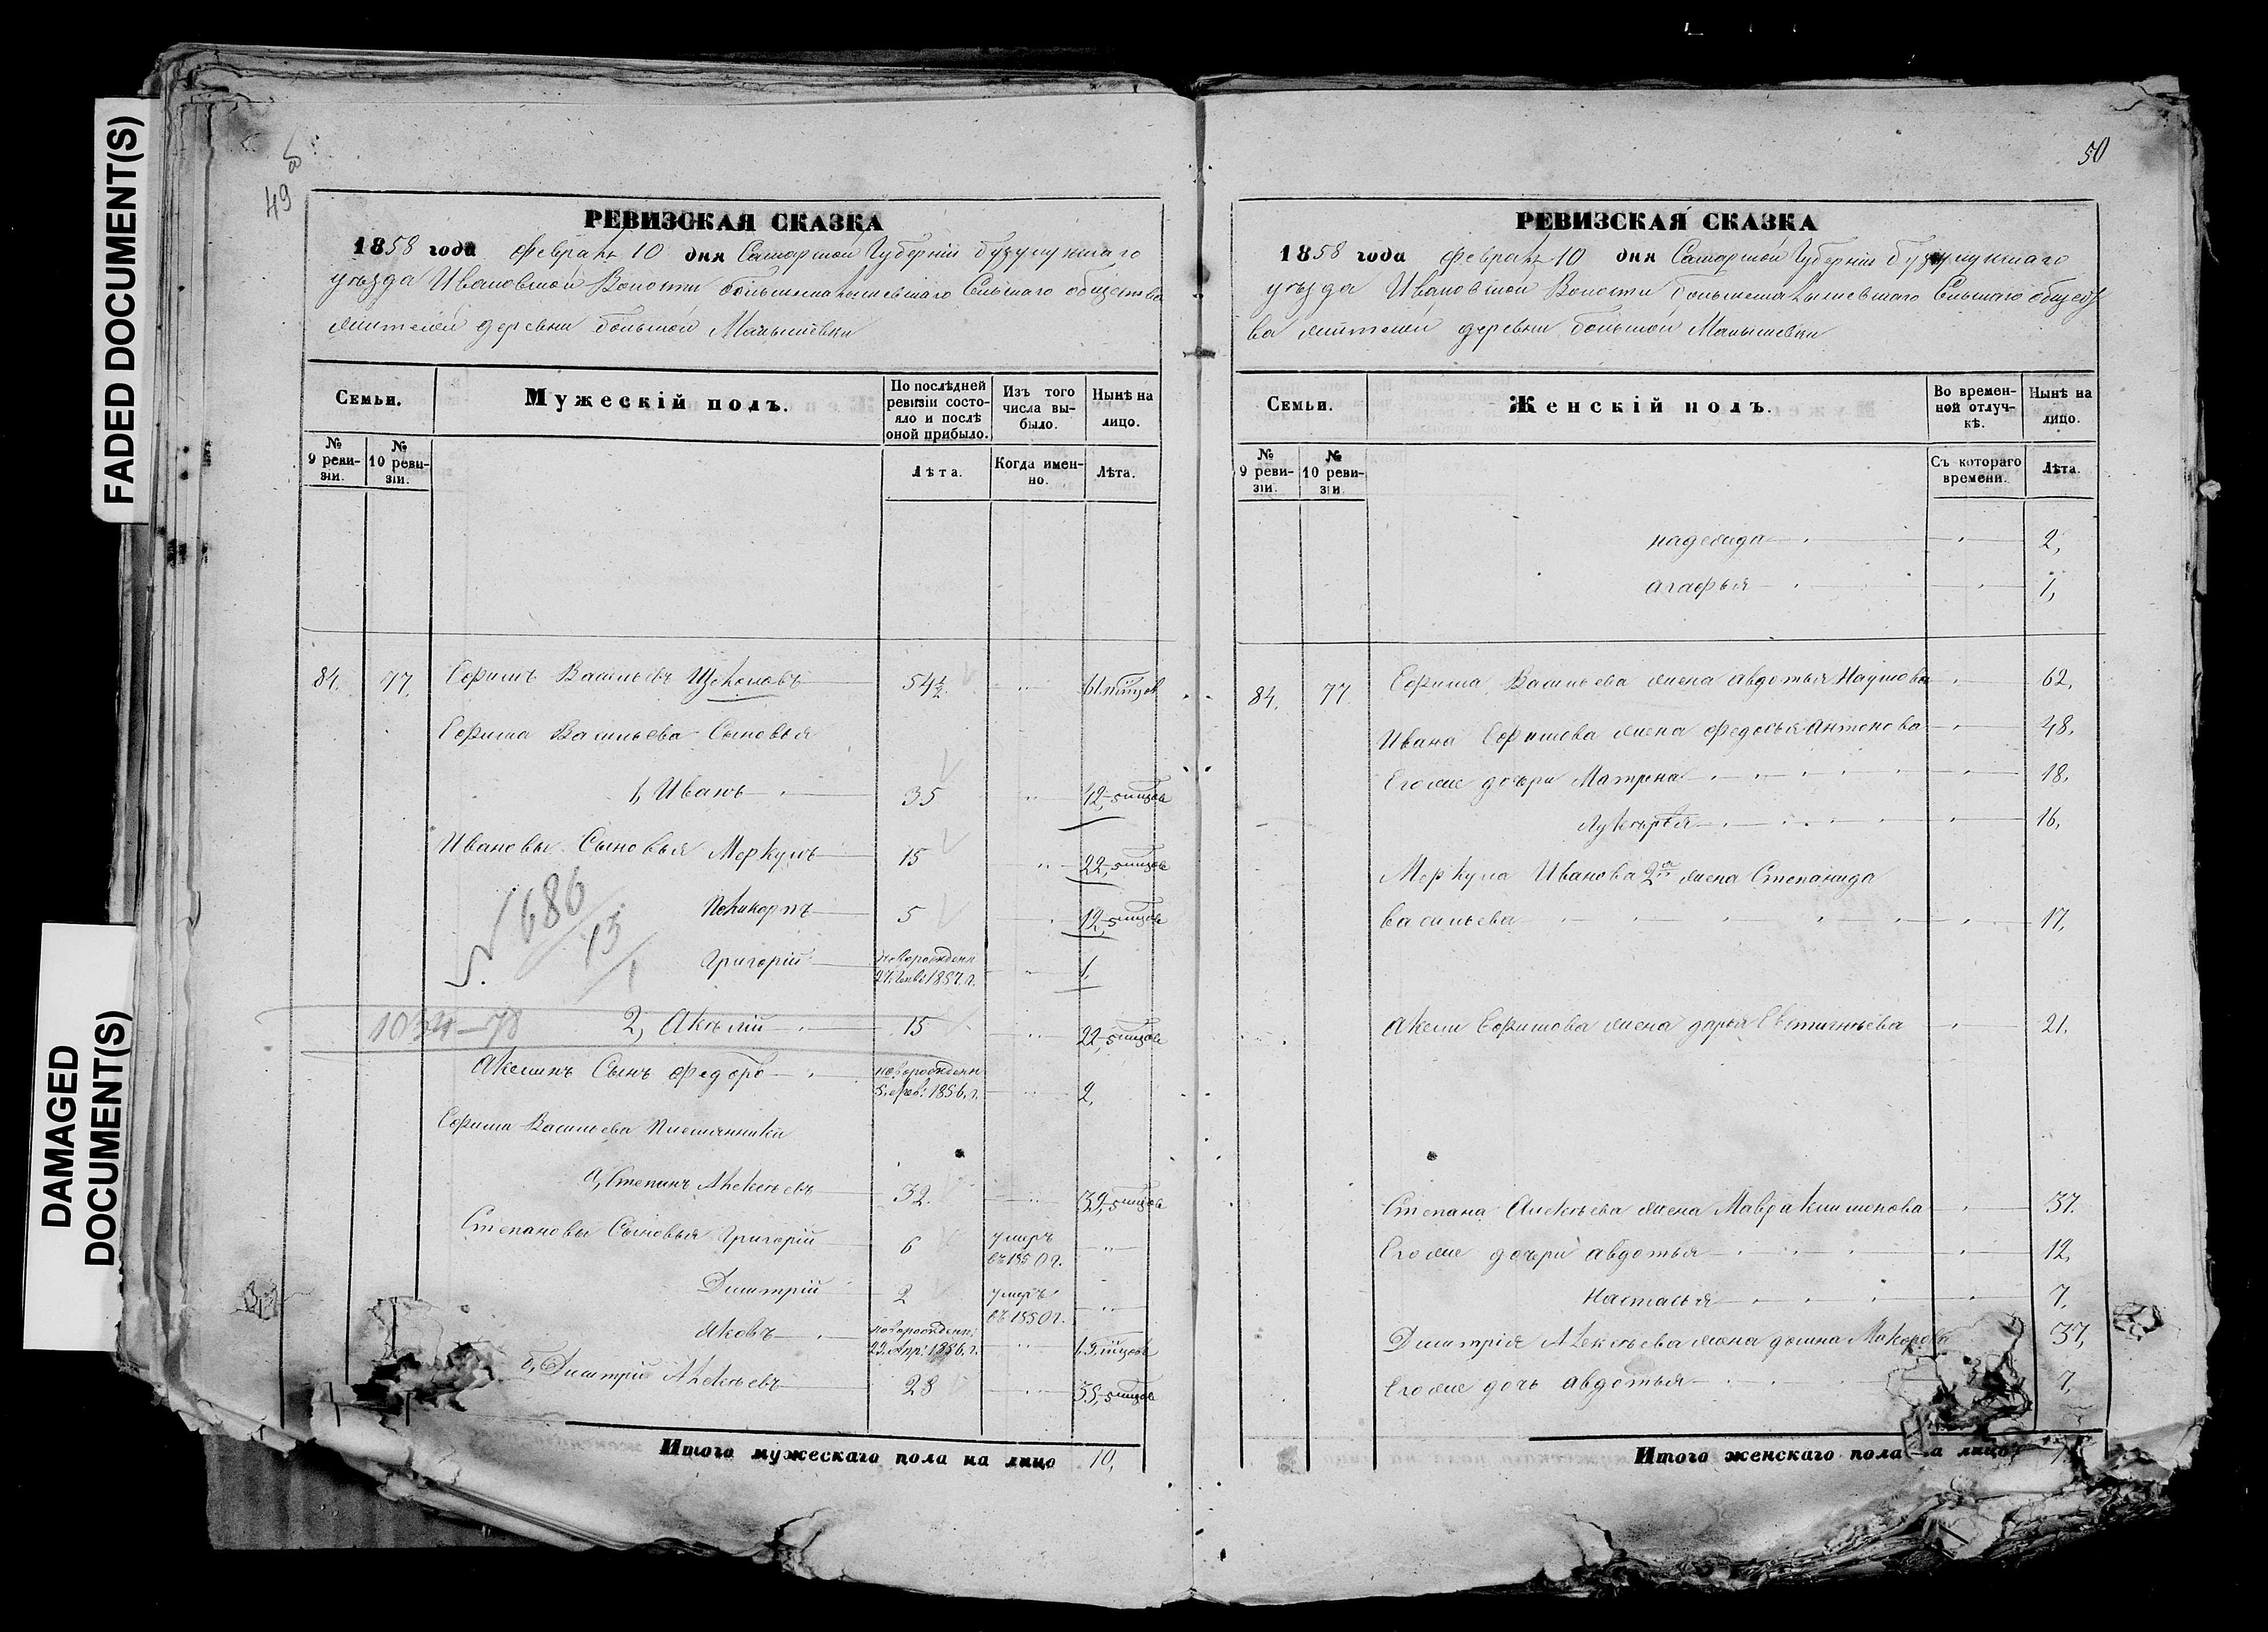 FADED DOCUMENT(S)
DAMAGED
DOCUMENT(S)
49 об
РЕВИЗСКАЯ СКАЗКА
1858 года февраля 10 дня Самарской Губернiи бузулукскаго
уѣзда Ивановской Волости большемалышевскаго Сельскаго общества
жителей деревни большой Малышевки
Семьи.
Мужескiй полъ.
По послѣдней ревизiи состояло и послѣ оной прибыло.
Изъ того числа выбыло.
Нынѣ на лицо.
№ 9 ревизiи.
№ 10 ревизiи.
Лѣта.
Когда именно.
Лѣта.
84. 77. Ефимъ Васильевъ Щеколовъ 54½ 61
Ефима Васильева Сыновья
1, Иванъ 35 42
Ивановы Сыновья Меркулъ 15 22
Поликарпъ 5 12
686
13
1
Григорiй новорожденн 27 1857 г. 1.
1034-78
2, Акелiй 15 22
Акелинъ Сынъ Федоръ новорожденн 5 1856 г. 2,
Ефима Васильева Племянники
а, Степанъ Алексѣевъ 32. 39
Степановы Сыновья Григорiй 6 умеръ въ 1850 г.
Дмитрiй 2 умеръ въ 1850 г.
Яковъ новорожденн. 23 Апр: 1856. г.
б, Дмитрiй Алексѣевъ 28 35
Итого мужескаго пола на лицо 10,
50
РЕВИЗСКАЯ СКАЗКА
1858 года февраля 10 дня Самарской Губернiи бузулукскаго
уѣзда Ивановской Волости большемалышевскаго Сельскаго общест
ва жителей деревни большой Малышевки
Семьи.
Женскiй полъ.
Во временной отлучкѣ.
Нынѣ на лицо.
№ 9 ревизiи.
№ 10 ревизiи.
Съ котораго времени.
Лѣта.
надежда 2,
агафья 1,
84. 77. Ефима Васильева жена авдотья Наумова 62,
Ивана Ефимова жена федосья Антонова 48,
Его же дочери Матрена 18,
Лукерья 16,
Меркула Иванова 2я жена Степанида
васильева 17,
Акели Ефимова жена дарья Евстигнѣева 21.
Степана Алексѣева жена Мавра климонова 37.
Его же дочери авдотья 12,
Настасья 7,
Дмитрiя Алексѣева жена домна Макарова 37,
Его же дочь авдотья 7,
Итого женскаго пола на лицо